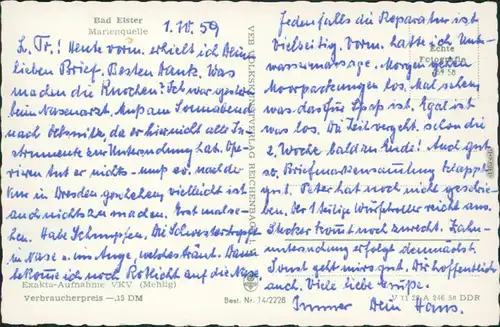 Bad Elster
Marienquelle
1. IV. 59
L. Tr.! Heute vorm. erhielt ich Deinen
lieben Brief. Besten Dank. Was
machen die Knochen? Ich war gestern
beim Nasenarzt. Muß am Sonnabend
nach da er hier nicht alle In-
strumente zur Untersuchung hat. Ope-
riren tut er nichts - muß ev. nach der
Kur in Dresden geschehen vielleicht ist
auch nichts zu machen. Erst mal se-
hen. Habe Schnupfen. Die Schwester tropfte
in Nase u. im Auge, welches tränt. Dann
bekomme ich noch Rotlicht auf die Nase.
Exakta-Aufnahme VKV (Mehlig)
Verbraucherpreis -.15 DM
VEB VOLKSKUNSTVERLAG REICHENBACH
Best. Nr. 14/2228
Jedenfalls die Reparatur ist
vielseitig. Vorm. hatte ich Unter-
wassermassage. Morgen gehen
Moorpackungen los. Mal sehen
was das für Spaß ist. Egal ist
was los. Die Zeit vergeht. schon die
2. Woche bald zu Ende! Auch gut
so. Briefmarkensammlung klappt
gut. Peter hat noch nicht geschrie-
ben. Der 1 teilige reicht aus.
kommt noch zurecht. Zahn-
untersuchung erfolgt demnächst.
Sonst geht mirs gut. Dir hoffentlich
auch. Viele liebe Grüße.
Immer Dein Hans.
Echte
Fotografie
V 11 28 A 246 58 DDR